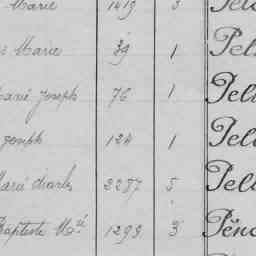 Marie 1419 3 Pel
s Marie 39 1 Pel
Marie Joseph 76 1 Pel
Joseph 124 1 Pel
Marie Charles 2287 5 Pel
Baptiste Mie 1299 3 Pén